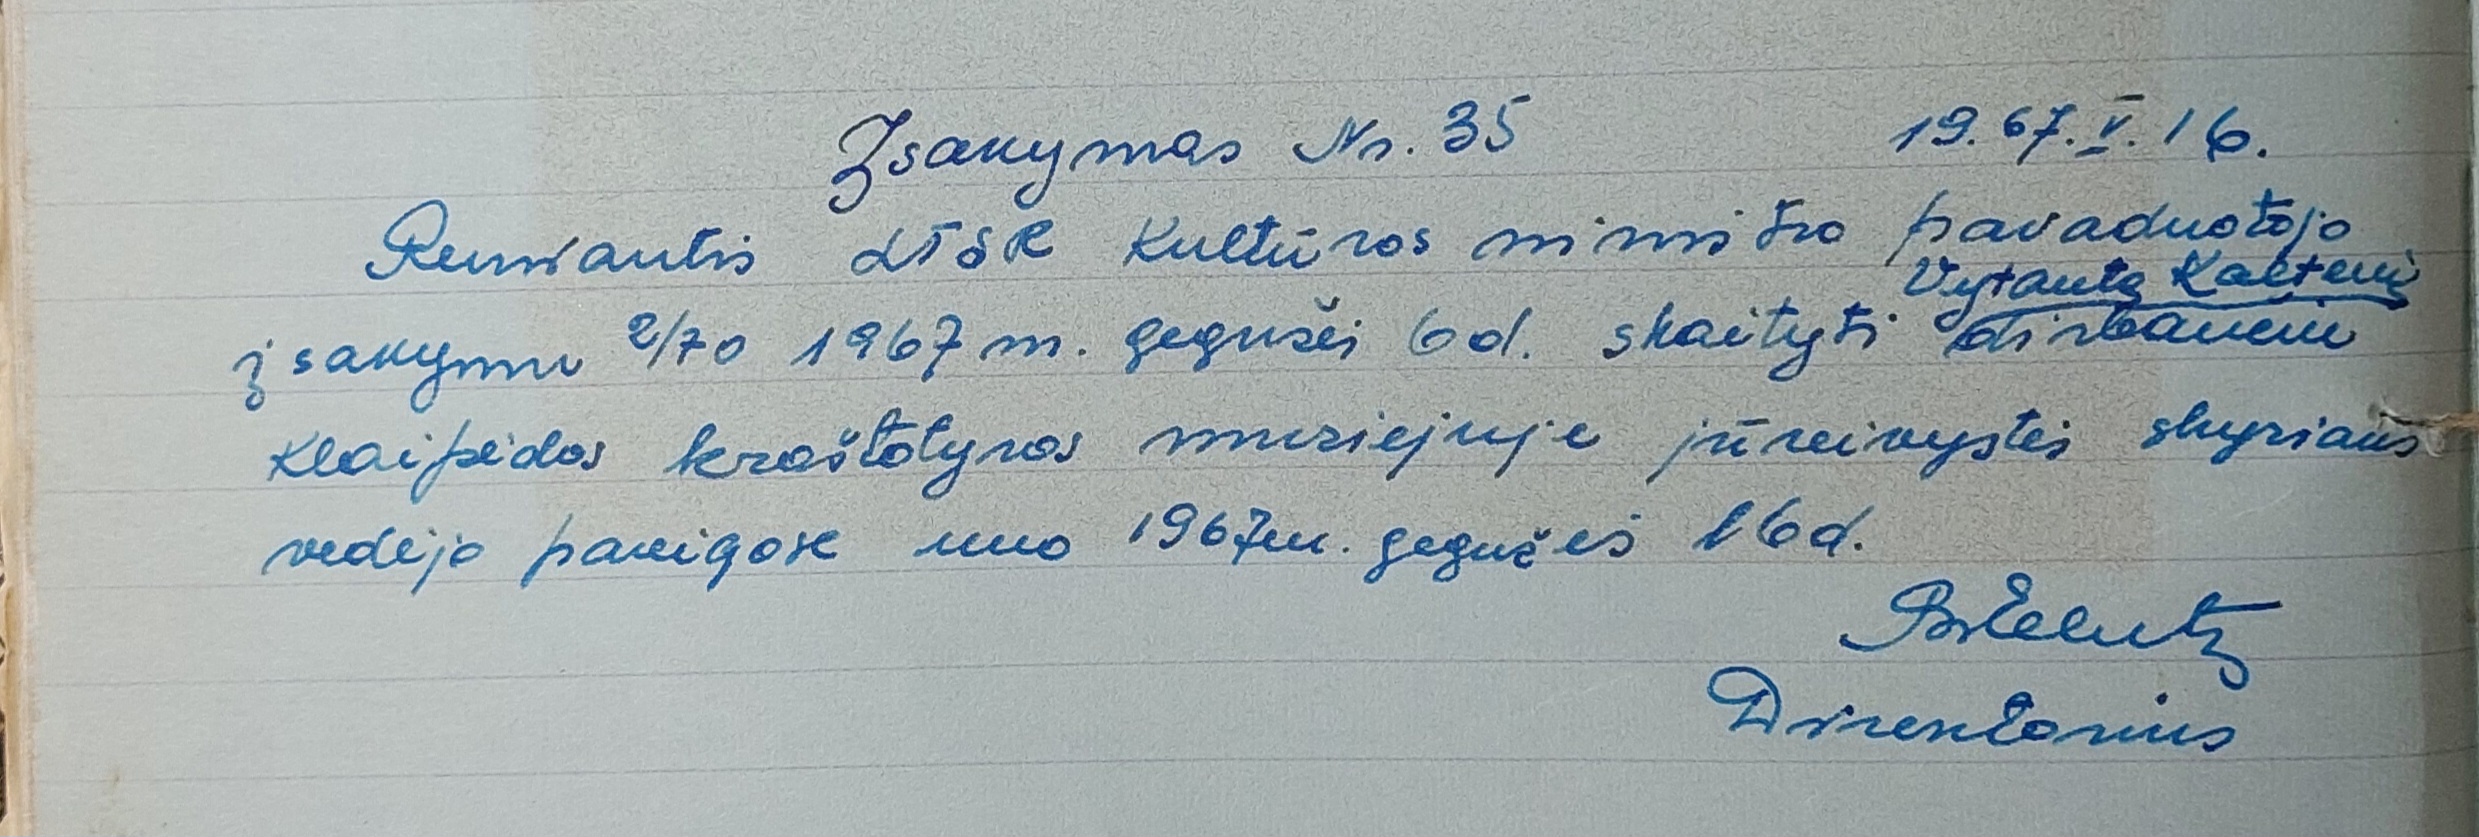 Įsakymas Nr. 35 1967.V.16.
Remiantis LTSR Kultūros ministro pavaduotojo
Vytautą Kaltenį
įsakymu 2/70 1967 m. gegužės 6 d. skaityti dirbančiu
Klaipėdos kraštotyros muziejuje jūreivystės skyriaus
vedėjo pareigose nuo 1967 m. gegužės 16 d.
Direktorius